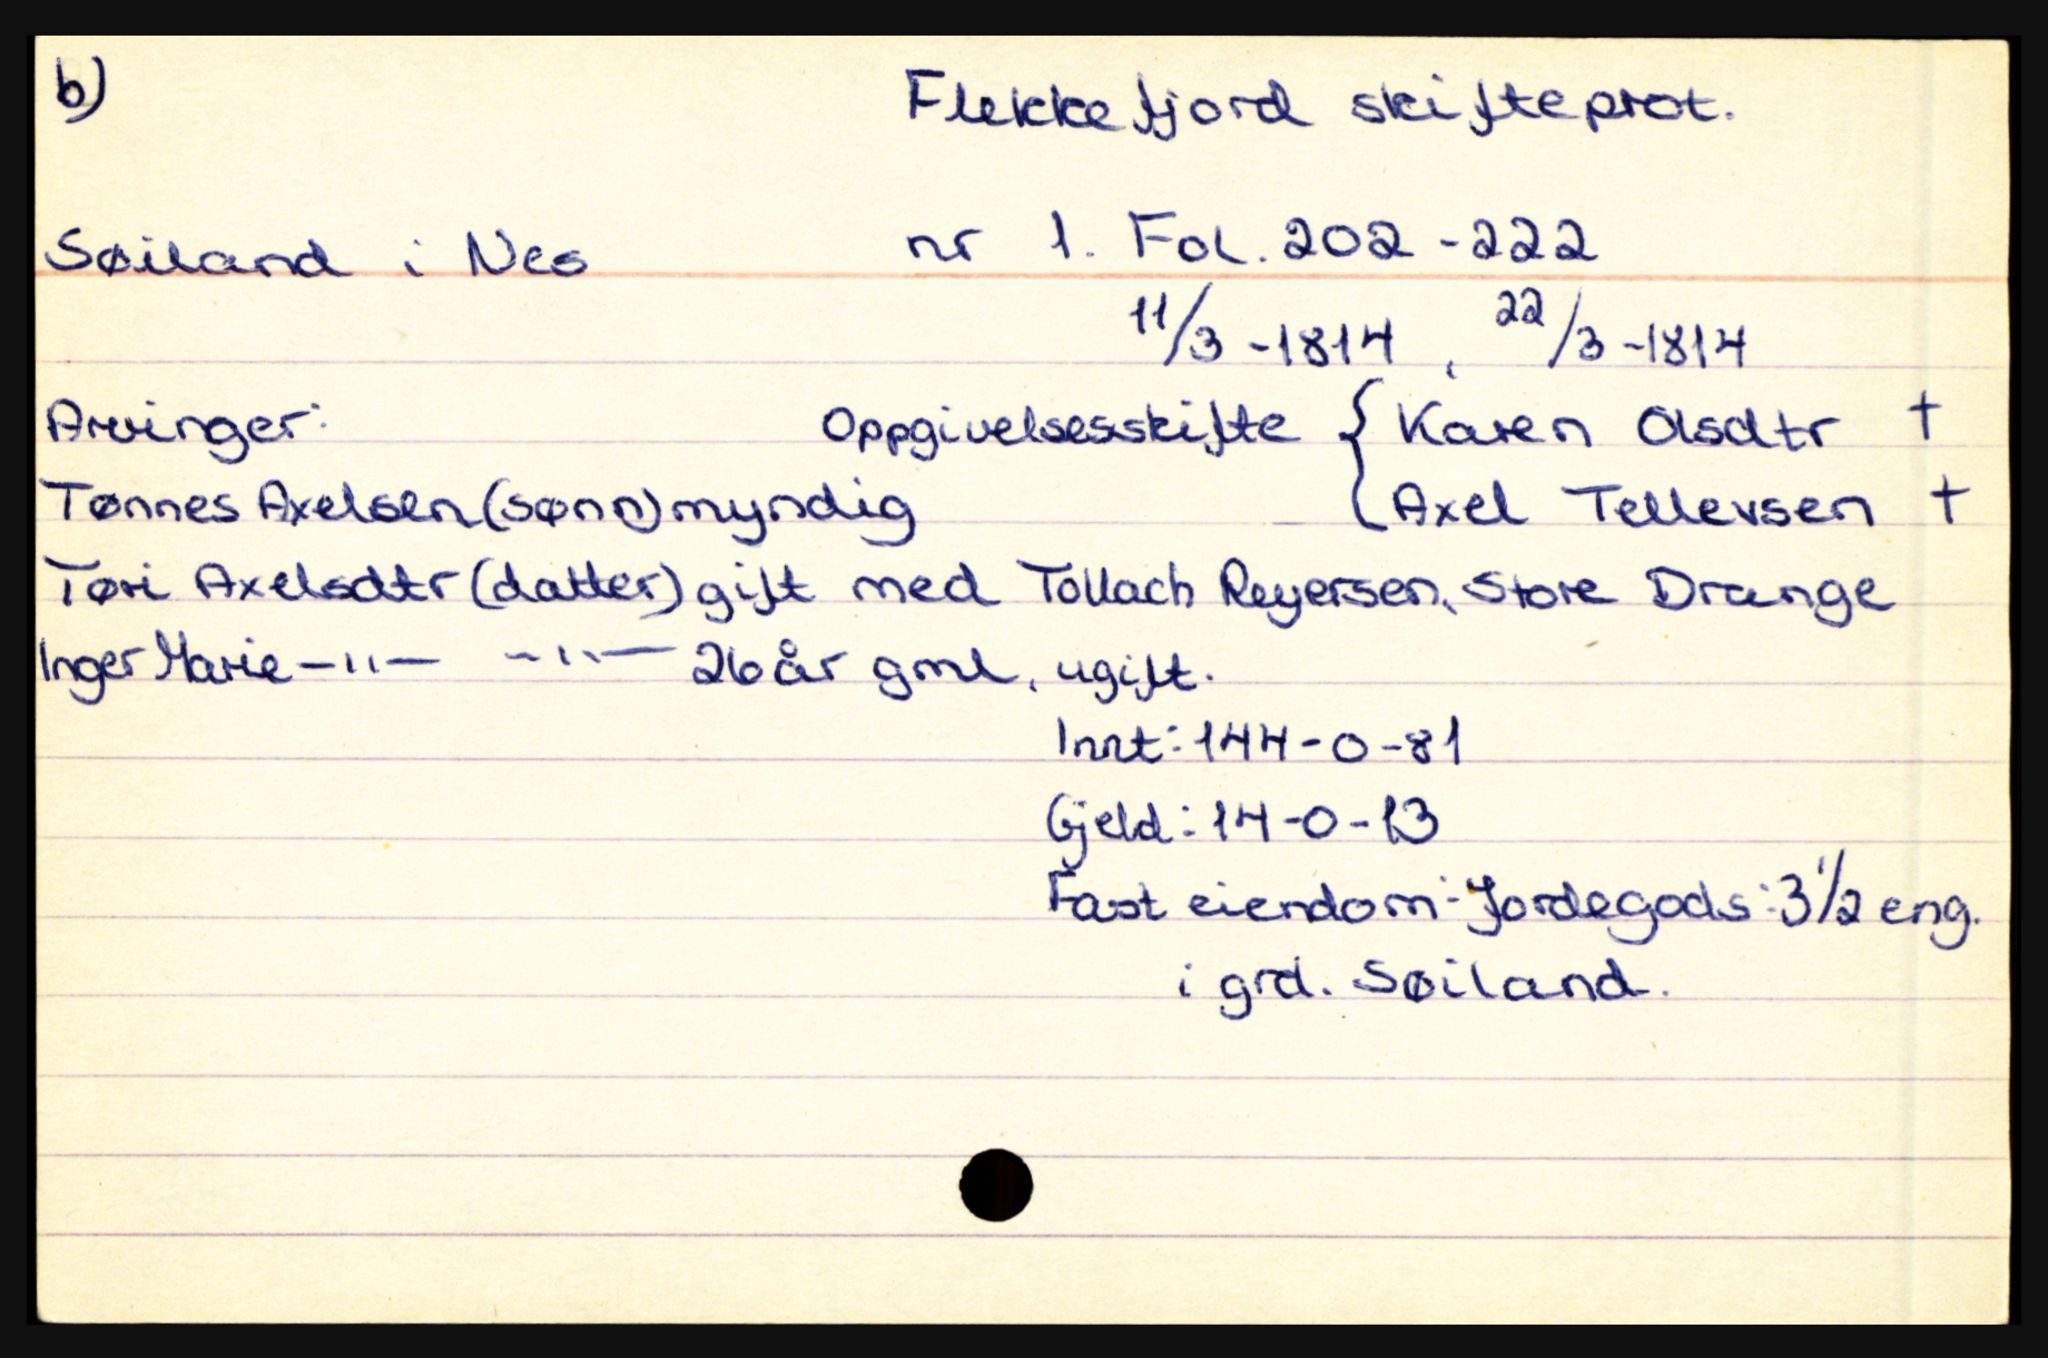 b) Flekkefjord skifteprot.
Søiland i Nes nr 1. Fol. 202-222
11/3-1814, 22/3-1814
Arvinger: Oppgivelsesskifte { Karen Olsdtr †
Tønnes Axelsen (sønn) myndig { Axel Tellevsen †
Tøri Axelsdtr (datter) gift med Tollach Reyersen, Store Drange
Inger Marie -"- -"- 26 år gml, ugift.
Innt: 144-0-81
Gjeld: 14-0-13
Fast eiendom: Jordegods: 3 1/2 eng.
i grd. Søiland.